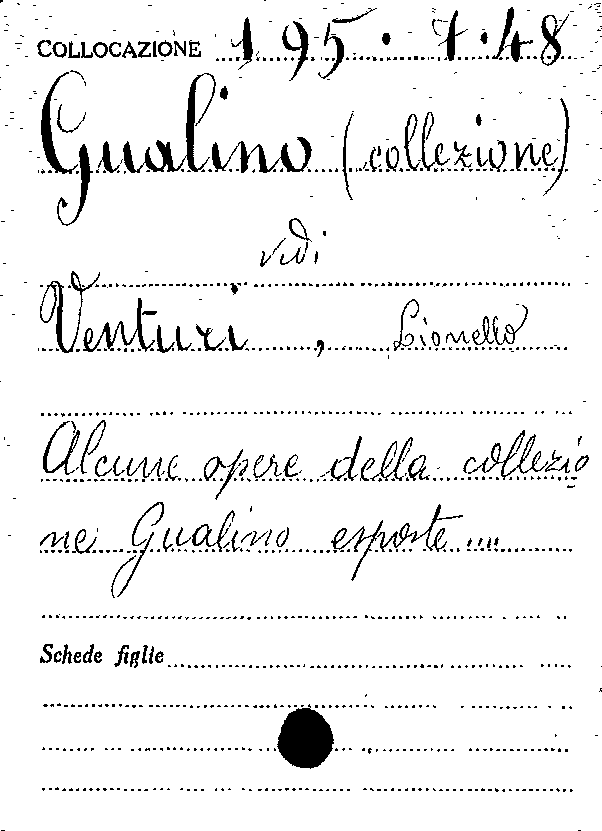 COLLOCAZIONE 195.7.48
Gualino (collezione)
vedi
Venturi, Lionello
Alcune opere della collezio
ne Gualino esposte....
Schede figlie